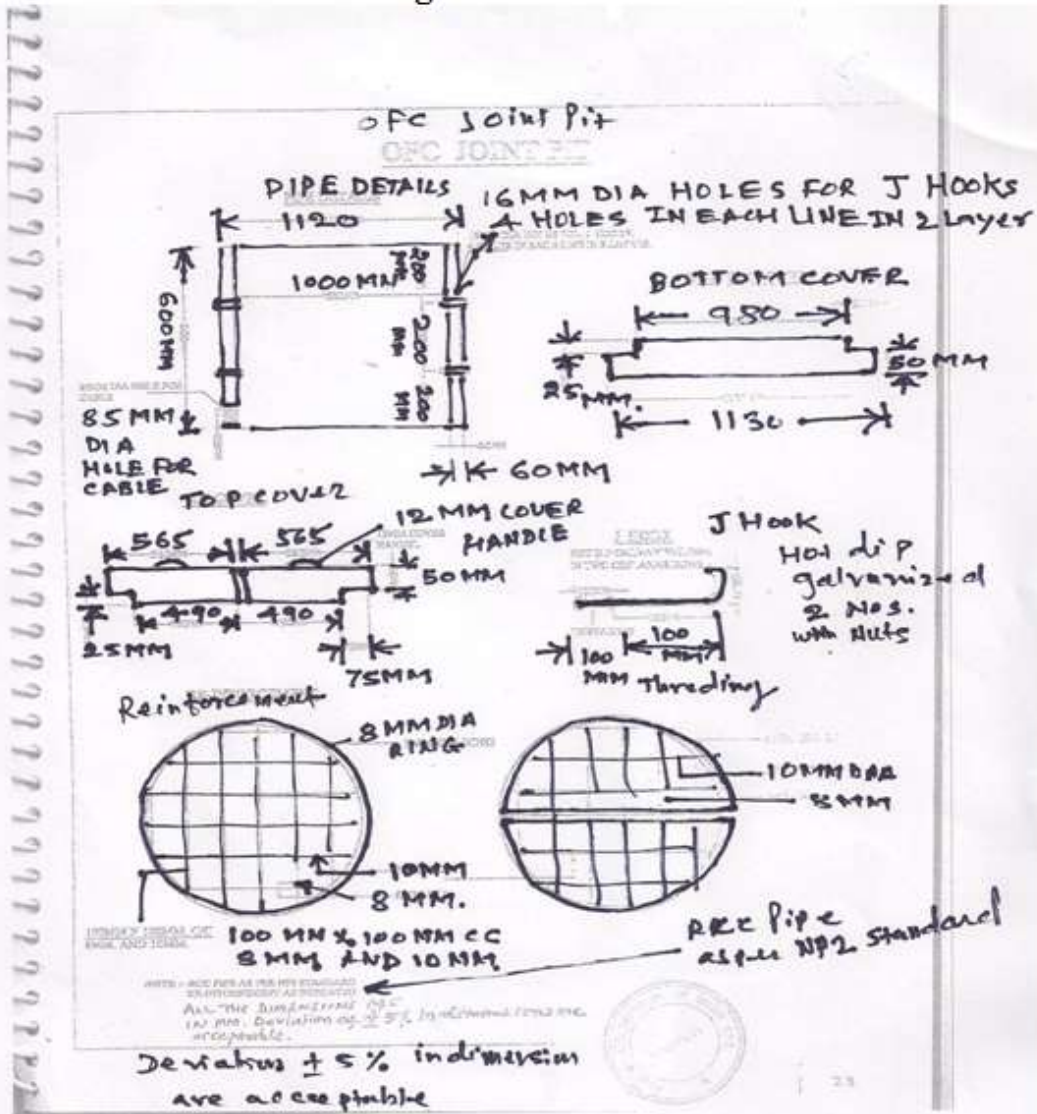 OFC Joint Pit
OFC JOINT PIT
PIPE DETAILS
1120
16MM DIA HOLES FOR J HOOKS
4 HOLES IN EACH LINE IN 2 Layer
200 MM
1000MM
600MM
200 MM
200 MM
85MM
DIA
HOLE FOR
CABLE
60MM
BOTTOM COVER
980
25MM.
50MM
1130
TOP COVER
565
565
12 MM COVER
HANDLE
50MM
490
490
25MM
75MM
J HOOK
J HOOK
Hot dip
galvanized
2 Nos.
with Nuts
100
MM
100
MM
Threding
Reinforcement
8MM DIA
RING
10MM
8 MM.
100 MM X 100MM CC
8MM AND 10MM
10MM DIA
8MM
RCC Pipe
as per NP2 Standard
8MM AND 10MM
ALL THE DIMENSIONS ARE
IN MM. Deviation of ± 5% in dimensions are
acceptable.
Deviation ± 5% in dimersion
are acceptable
23